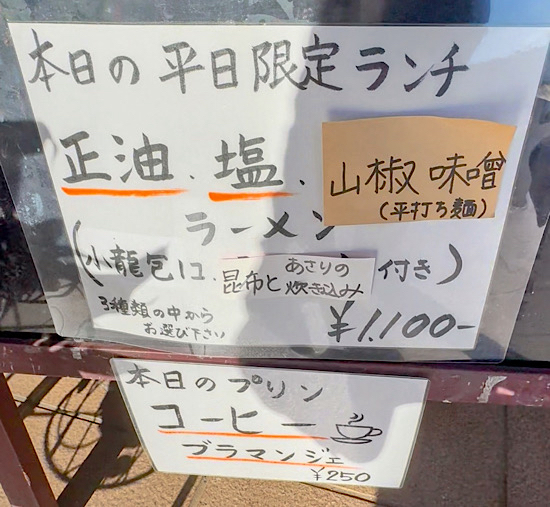 本日の平日限定ランチ
正油、塩、山椒味噌
(平打ち麺)
ラーメン
(小龍包は、昆布とあさりの炊き込み付き)
3種類の中から
お選び下さい
¥1,100-
本日のプリン
コーヒー
ブラマンジェ
¥250